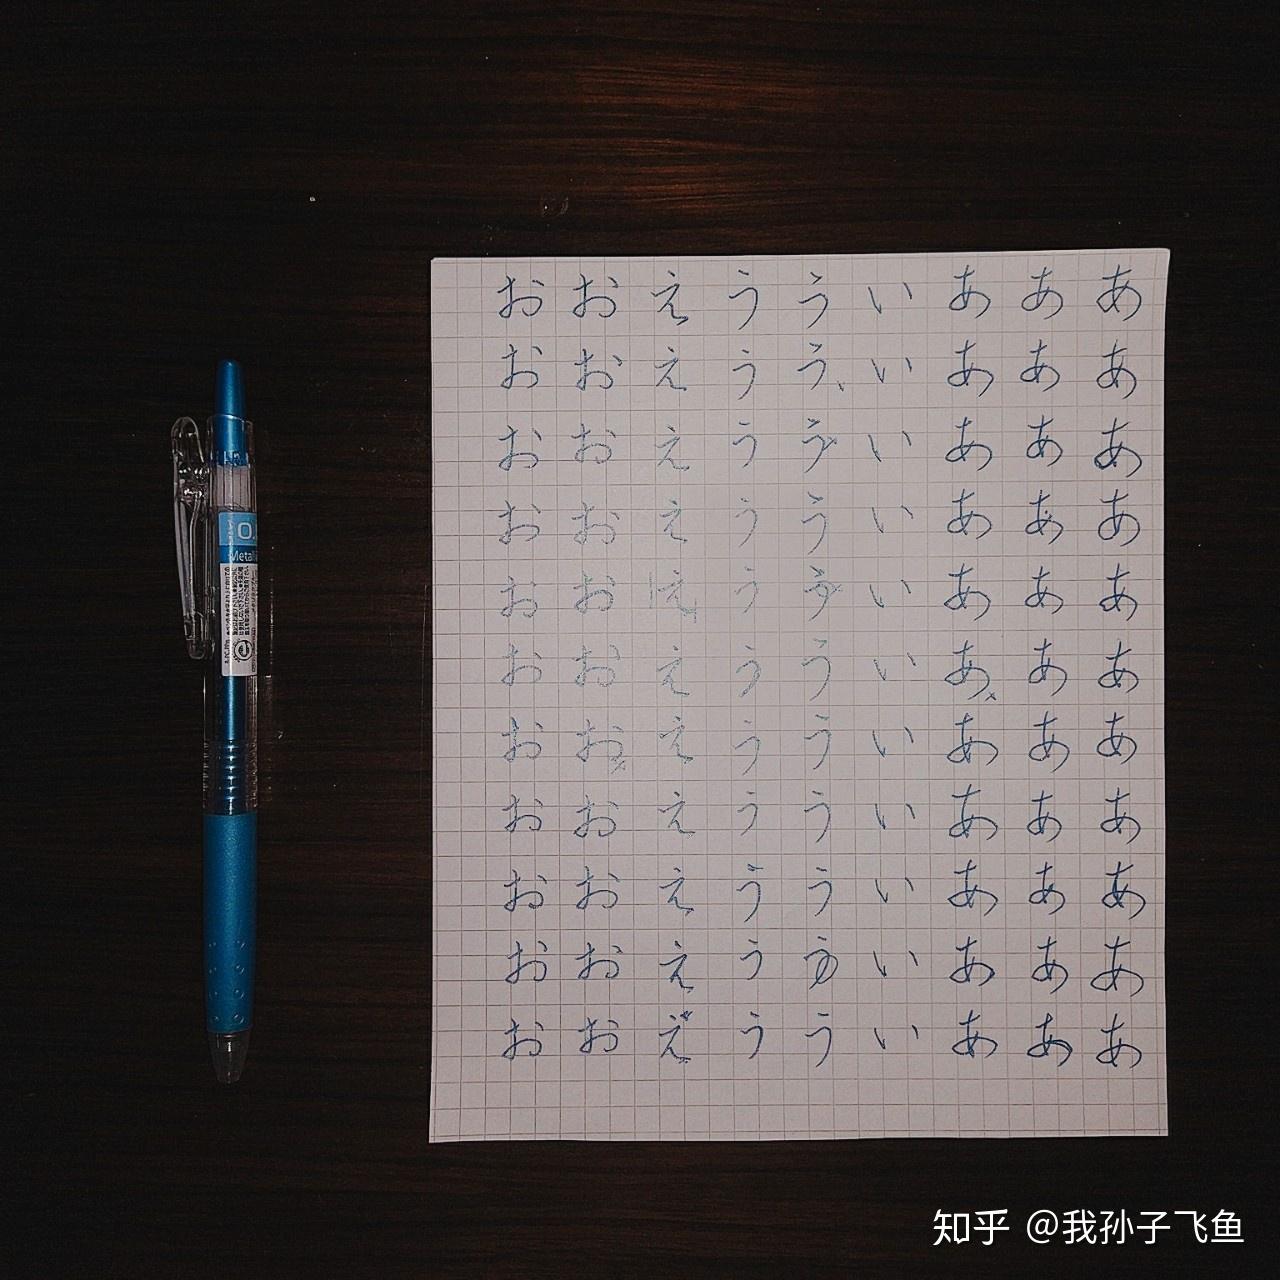 あああああああああああ
あああああああああああ
あああああああああああ
いいいいいいいいいいい
ううううううううううう
ううううううううううう
えええええええええええ
おおおおおおおおおおお
おおおおおおおおおおお
0.
Metal
知乎 @我孙子飞鱼